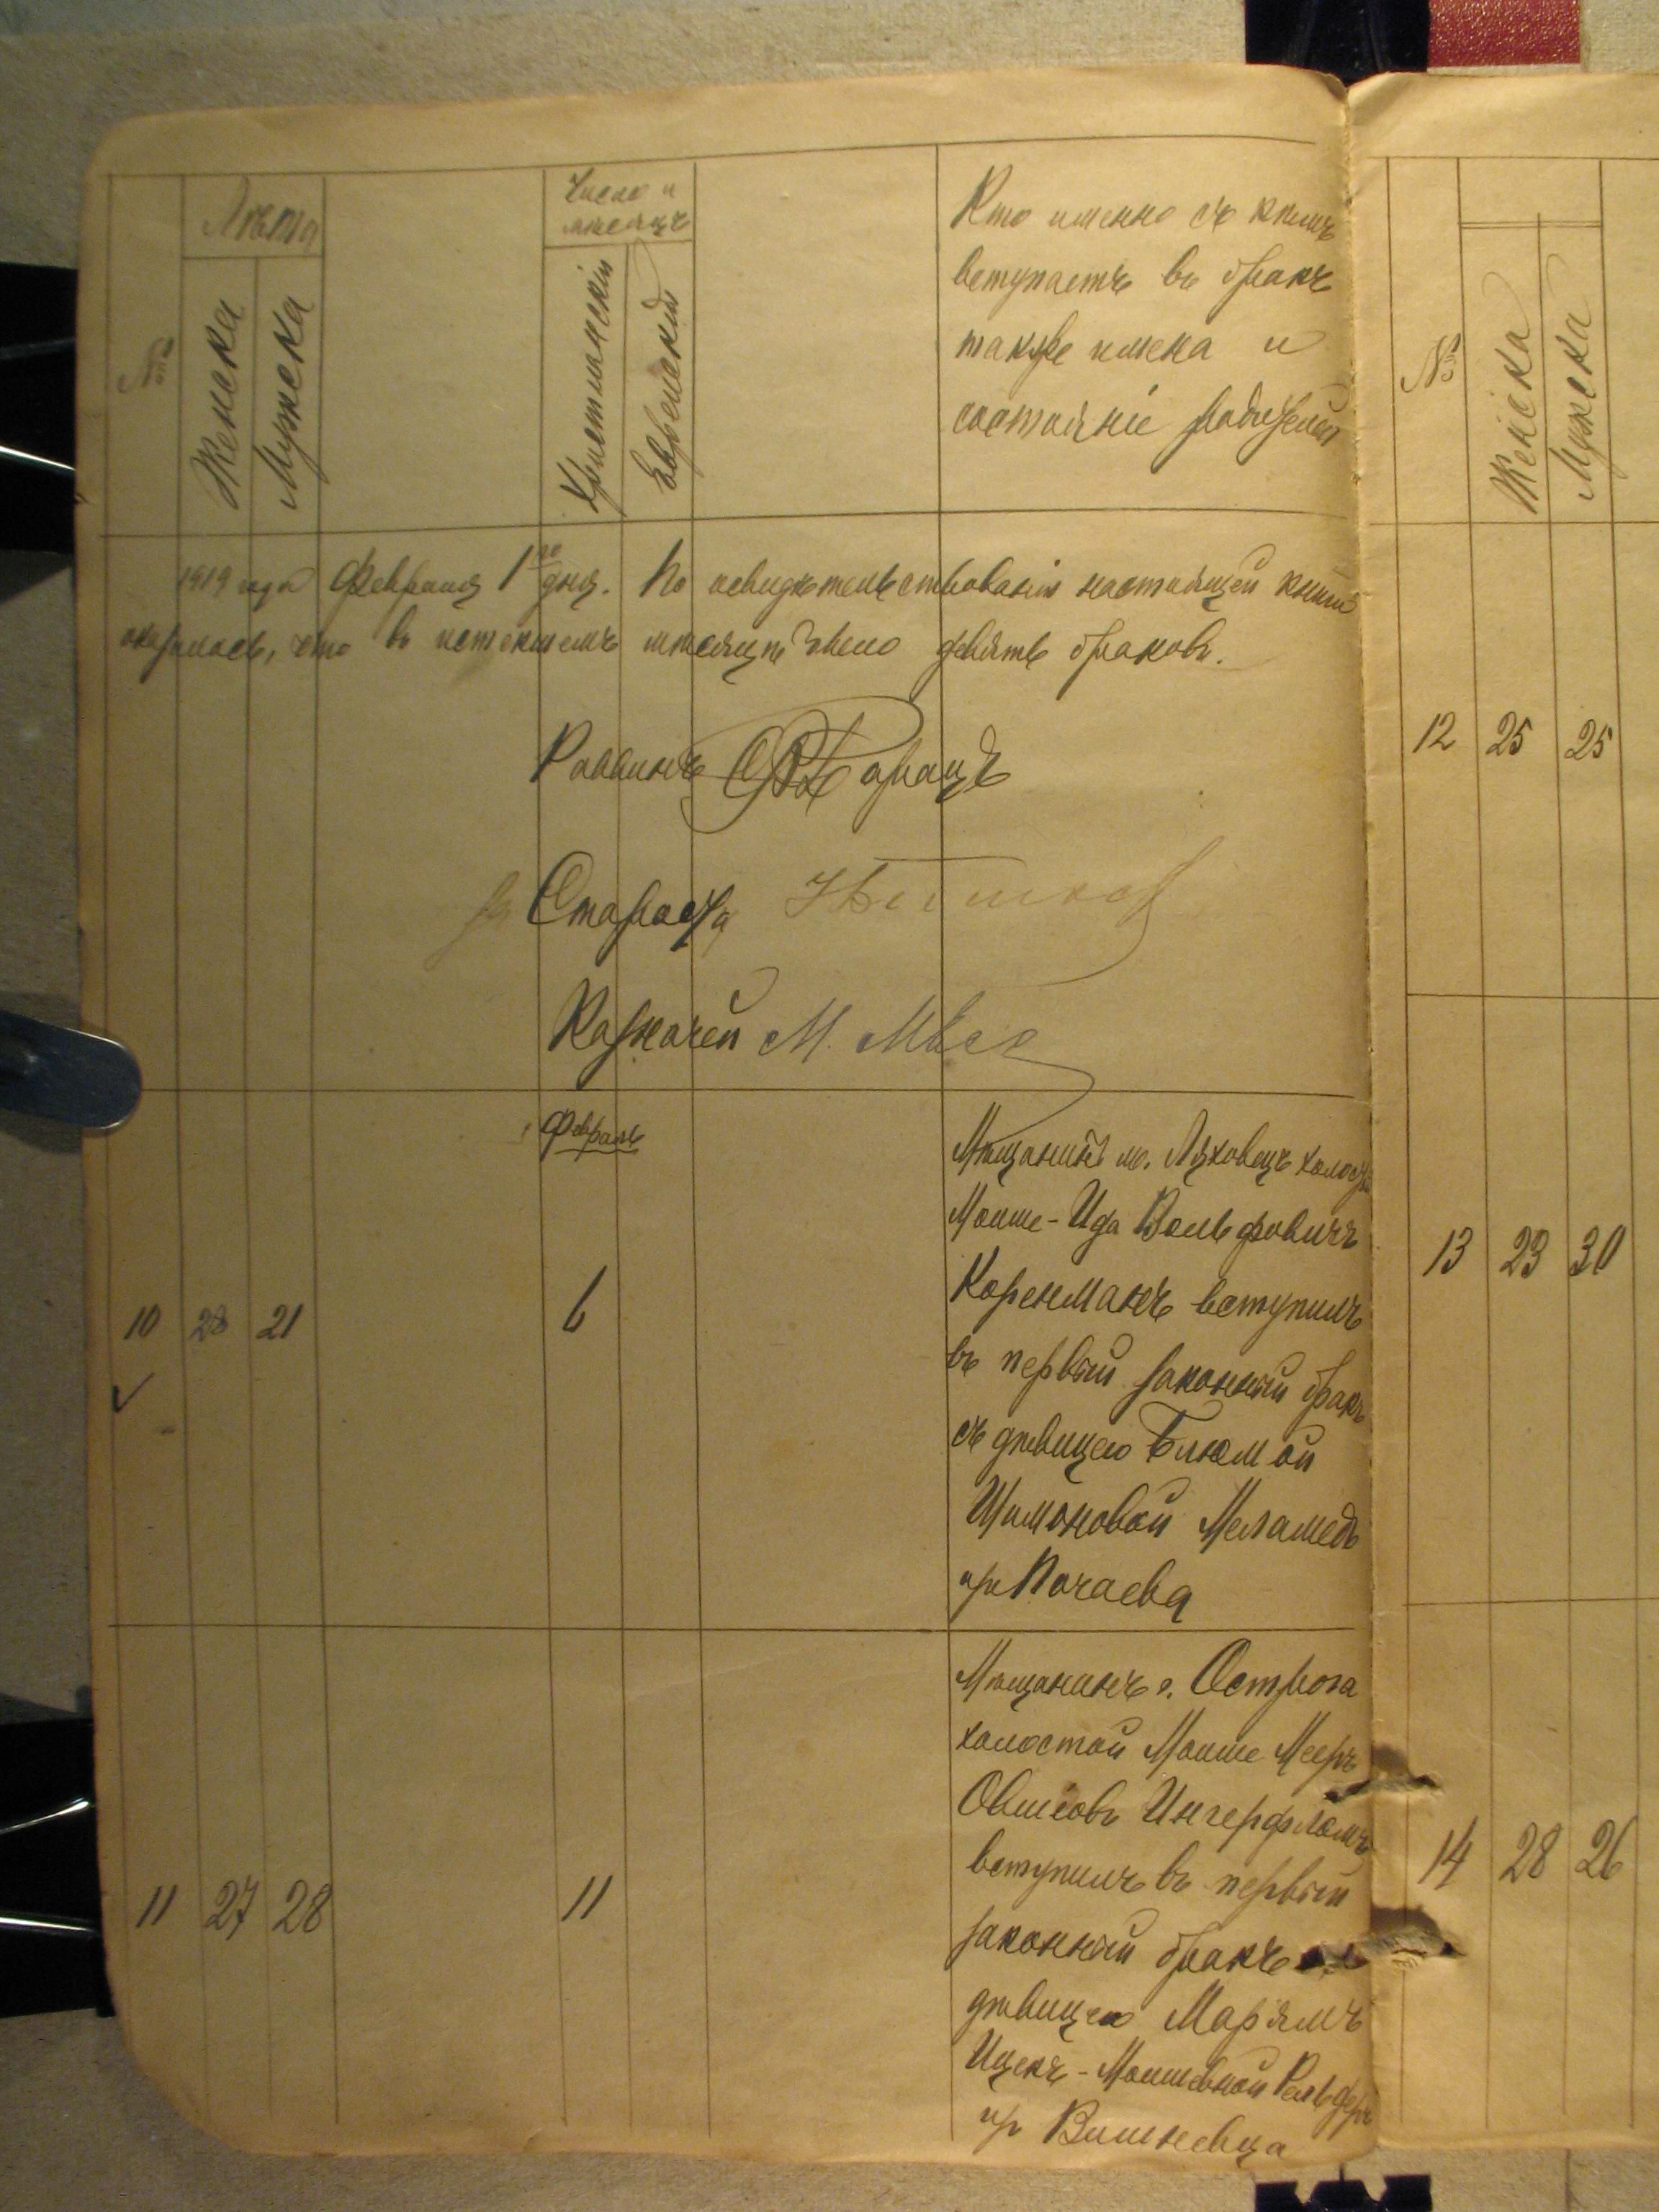 №
Лѣта
Женска
Мужска
Число и
мѣсяцъ
Христианский
Еврейский
Кто именно съ кѣмъ
вступаетъ въ бракъ
также имена и
состоянiе родителей
1919 года Февраля 1го дня. По освидѣтельствованiи настоящей книги
оказалось, что въ истекшемъ мѣсяцѣ было девять браковъ.
Раввинъ
За Староста
Казначей М.
Февраль
10 28 21 6
Мѣщанинъ м. Ляховецъ холостой
Моише-Ида Вольфовичъ
Коренманъ вступилъ
въ первый законный бракъ
съ дѣвицею Блюмой
Шимоновой Меламедъ
изъ Почаева
11 27 28 11
Мѣщанинъ г. Острога
холостой Моише Мееръ
Овшiовъ Ингерфламъ
вступилъ въ первый
законный бракъ съ
дѣвицею Марiямъ
Ицекъ-Моишевной
из Вишневца
№
Женска
Мужска
12 25 25
13 23 30
14 28 26